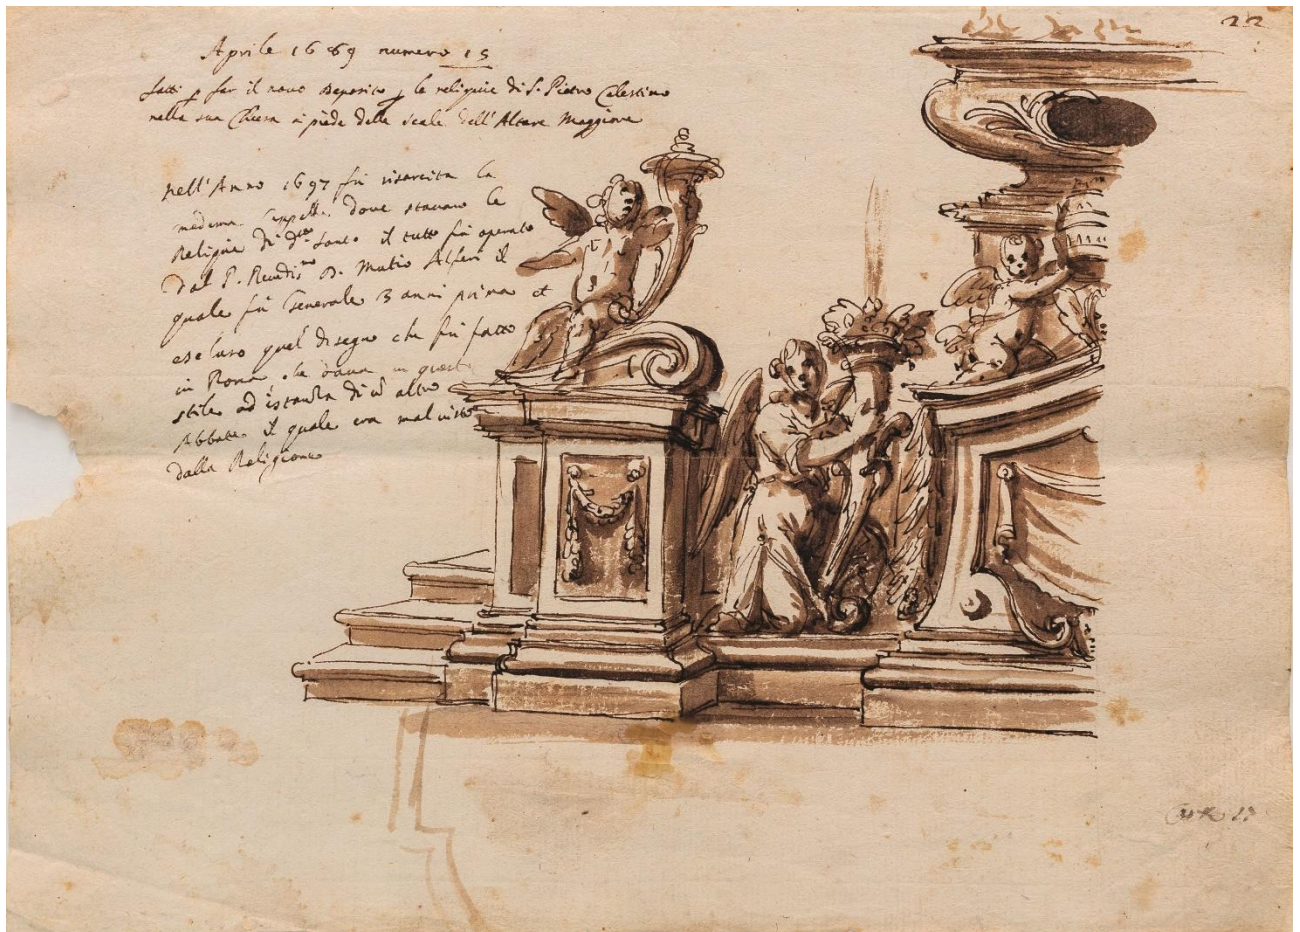 22
Aprile 1689 numero 15
fatti p far il novo Deposito p le reliquie di S. Pietro Celestino
nella sua Chiesa a piede delle scale dell'Altare Maggiore
Nell'Anno 1697 fu risarcita la
medema Cappella dove stavano le
Reliquie di dto Santo il tutto fu operato
dal P. Revdismo D. Mutio Alferi il
quale fu Generale 3 anni prima et
escluso quel disegno che fu fatto
in Roma che dava in questo
stile ad istanza di altro
Abbate il quale era mal visto
dalla Religione